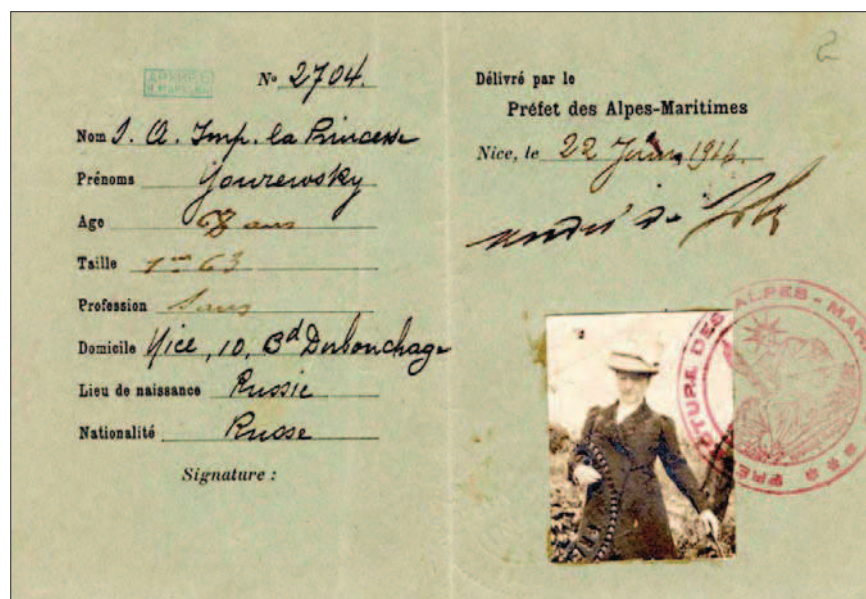 2
N° 2704.
Nom S. A. Imp. la Princesse
Prénoms Yourewsky
Age 68 ans
Taille 1m 63
Profession Sans
Domicile Nice, 10, Bd Dubouchage
Lieu de naissance Russie
Nationalité Russe
Signature :
Délivré par le
Préfet des Alpes-Maritimes
Nice, le 22 Juin, 1916.